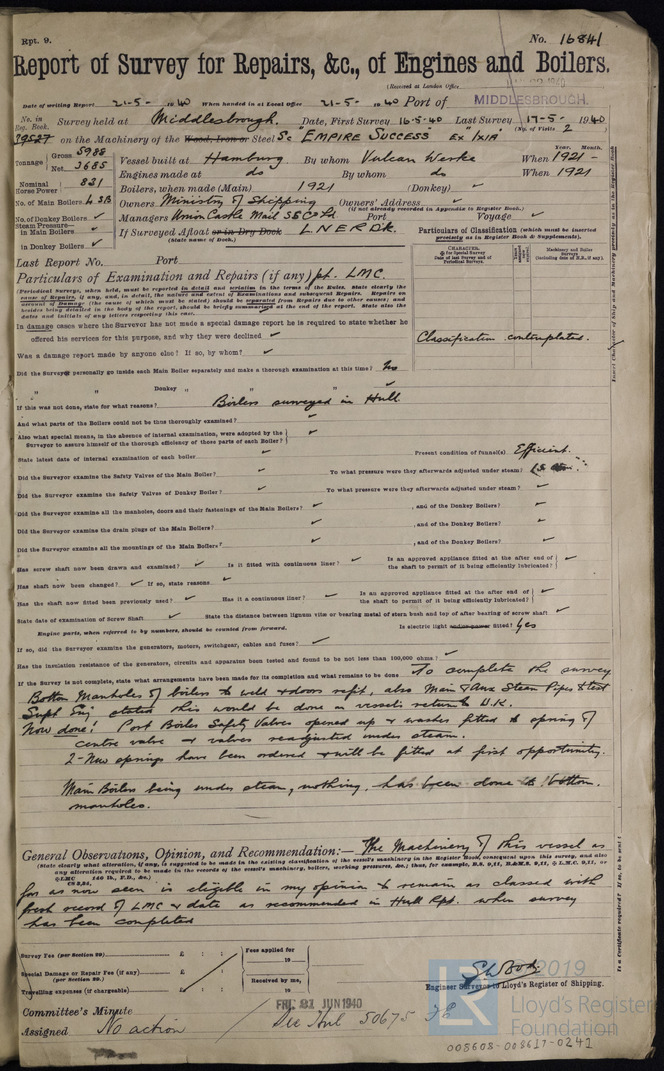 Rpt. 9.
No. 16841
Report of Survey for Repairs, &c., of Engines and Boilers.
(Received at London Office
Date of writing Report 21-5- 1940 When handed in at Local Office 21-5- 1940 Port of MIDDLESBROUGH.
No. in Reg. Book. Survey held at Middlesbrough. Date, First Survey 16-5-40 Last Survey 17-5- 1940
(No. of Visits 2)
39527 on the Machinery of the Wood, Iron or Steel Sc "EMPIRE SUCCESS" Ex "IXIA"
Tonnage Gross 5988
Net 3685
Vessel built at Hamburg By whom Vulcan Werke When 1921 -
Year. Month.
Engines made at do By whom do When 1921
Nominal Horse Power 821
Boilers, when made (Main) 1921 (Donkey)
No. of Main Boilers 4 SB
Owners Ministry of Shipping Owners' Address
(if not already recorded in Appendix to Register Book.)
No. of Donkey Boilers
Managers Union Castle Mail SS Co Ltd. Port Voyage
Steam Pressure—
in Main Boilers
in Donkey Boilers
If Surveyed Afloat or in Dry Dock L N E R Dk.
(State name of Dock.)
Particulars of Classification (which must be inserted precisely as in Register Book & Supplements).
Last Report No. Port
Particulars of Examination and Repairs (if any) pt. LMC.
Classification contemplated.
In damage cases where the Surveyor has not made a special damage report he is required to state whether he
offered his services for this purpose, and why they were declined
Was a damage report made by anyone else? If so, by whom?
Did the Surveyor personally go inside each Main Boiler separately and make a thorough examination at this time? No
" " Donkey " " "
If this was not done, state for what reasons? Boilers surveyed in Hull
And what parts of the Boilers could not be thus thoroughly examined?
Also what special means, in the absence of internal examination, were adopted by the
Surveyor to assure himself of the thorough efficiency of those parts of each Boiler?
State latest date of internal examination of each boiler
Present condition of funnel(s) Efficient.
Did the Surveyor examine the Safety Valves of the Main Boiler? To what pressure were they afterwards adjusted under steam?
Did the Surveyor examine the Safety Valves of Donkey Boiler? To what pressure were they afterwards adjusted under steam?
Did the Surveyor examine all the manholes, doors and their fastenings of the Main Boilers? , and of the Donkey Boilers?
Did the Surveyor examine the drain plugs of the Main Boilers? , and of the Donkey Boilers?
Did the Surveyor examine all the mountings of the Main Boilers? , and of the Donkey Boilers?
Has screw shaft now been drawn and examined? Is it fitted with continuous liner? Is an approved appliance fitted at the after end of the shaft to permit of it being efficiently lubricated?
Has shaft now been changed? If so, state reasons
Has the shaft now fitted been previously used? Has it a continuous liner? Is an approved appliance fitted at the after end of shaft to permit of it being efficiently lubricated?
State date of examination of Screw Shaft State the distance between lignum vitæ or bearing metal of stern bush and top of after bearing of screw shaft
Engine parts, when referred to by numbers, should be counted from forward. Is electric light and/or power fitted? Yes
If so, did the Surveyor examine the generators, motors, switchgear, cables and fuses?
Has the insulation resistance of the generators, circuits and apparatus been tested and found to be not less than 100,000 ohms?
If the Survey is not complete, state what arrangements have been made for its completion and what remains to be done To complete the survey
Bottom Manholes of boilers to weld & doors refit, also Main & Aux Steam Pipes to test
Supt Eng stated this would be done on vessels return to U.K.
Now done! Port Boiler Safety Valves opened up & washer fitted to spring of
centre valve & valves readjusted under steam.
2-New springs have been ordered & will be fitted at first opportunity.
Main Boilers being under steam, nothing has been done to bottom
manholes.
General Observations, Opinion, and Recommendation:— The Machinery of this vessel as
far as now seen is eligible in my opinion to remain as classed with
fresh record of LMC & date as recommended in Hull Rpt. when survey
has been completed
Survey Fee (per Section 29) £ : :
Special Damage or Repair Fee (if any) £ : :
(per Section 29.)
Travelling expenses (if chargeable) £ : :
Fees applied for
19
Received by me,
19
Engineer Surveyor to Lloyd's Register of Shipping.
Committee's Minute
FRI. 21 JUN 1940
Assigned No action
See Hull 50675
© 2019
Lloyd's Register
Foundation
008608-008617-0241